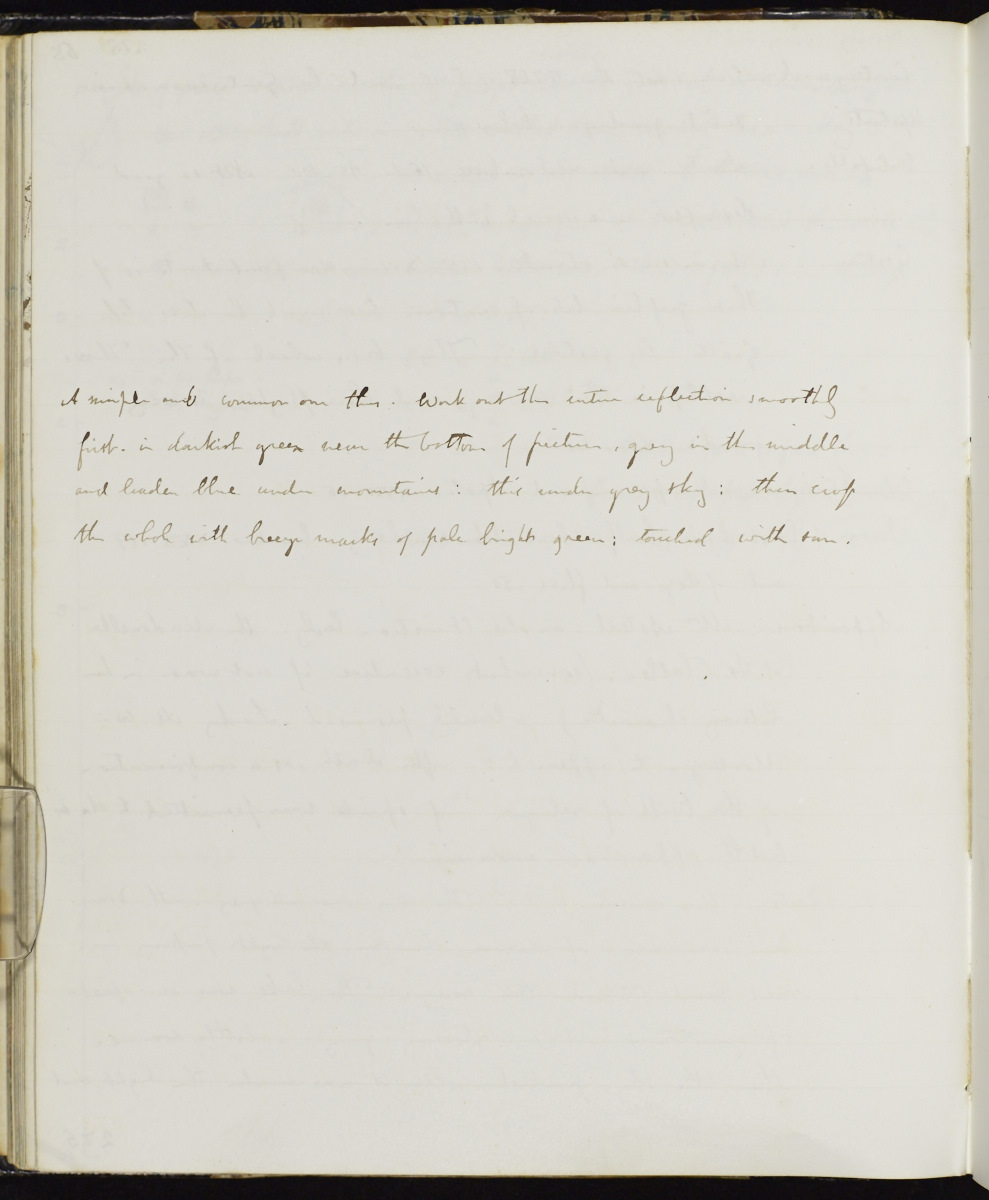 A simple and common one this. Work out the entire reflection smoothly
first. in darkish green near the bottom of picture, grey in the middle
and leaden blue under mountains: this under grey sky: then crop
the whole with breeze marks of pale bright green; touched with sun.